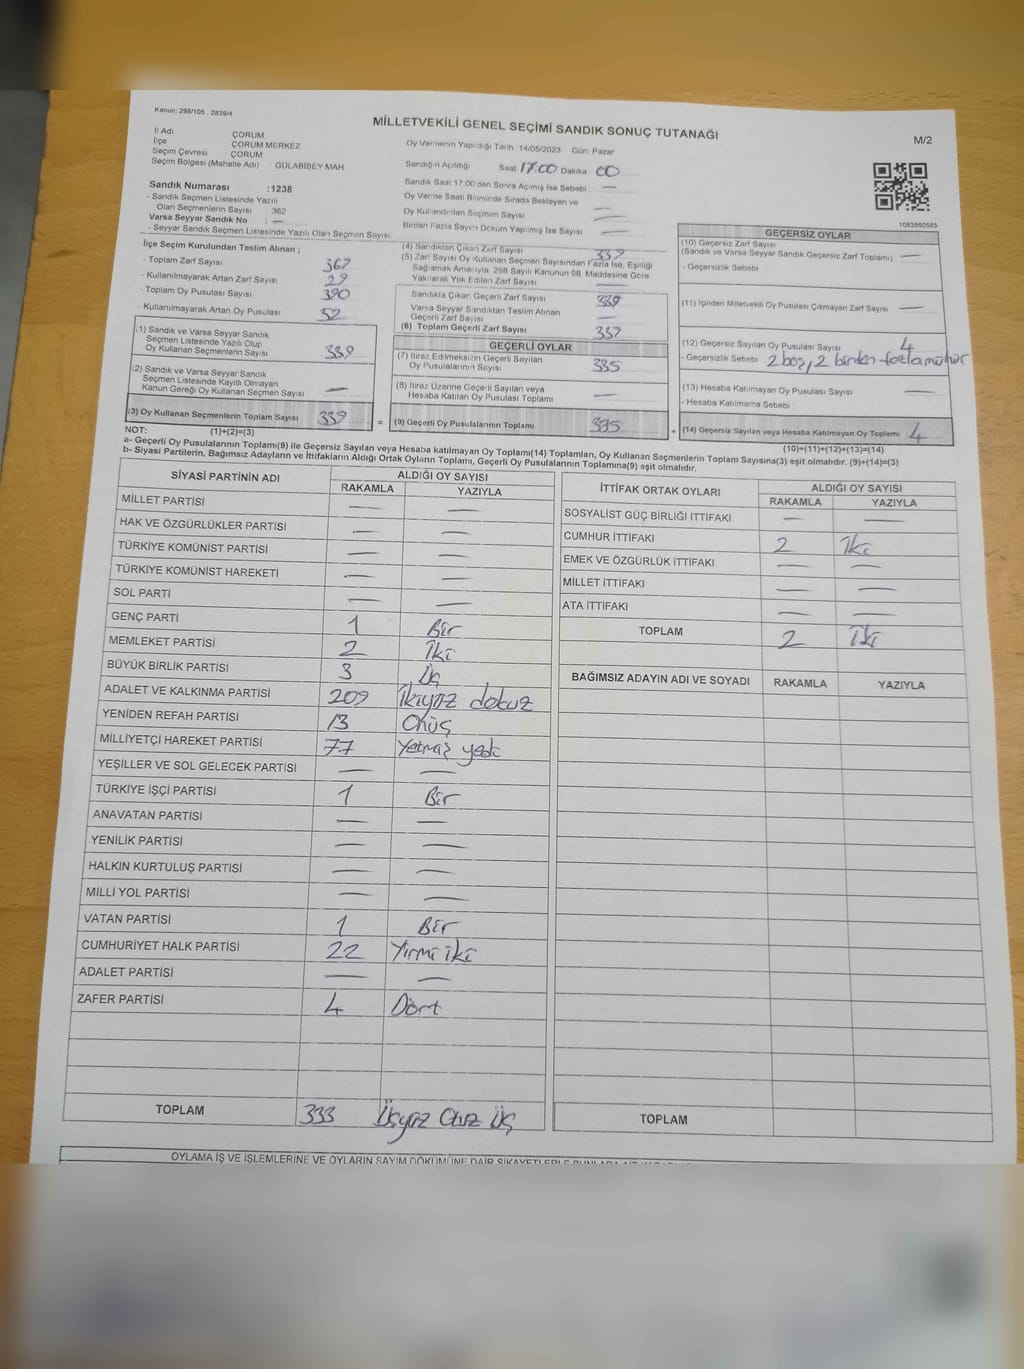 Kanun: 298/105 , 2839/4
MİLLETVEKİLİ GENEL SEÇİMİ SANDIK SONUÇ TUTANAĞI
M/2
İl Adı : ÇORUM
İlçe : ÇORUM MERKEZ
Seçim Çevresi : ÇORUM
Seçim Bölgesi (Mahalle Adı) : GÜLABİBEY MAH
Sandık Numarası : 1238
- Sandık Seçmen Listesinde Yazılı
Olan Seçmenlerin Sayısı : 362
Varsa Seyyar Sandık No : —
- Seyyar Sandık Seçmen Listesinde Yazılı Olan Seçmen Sayısı:
Oy Vermenin Yapıldığı Tarih 14/05/2023 Gün: Pazar
Sandığın Açıldığı Saat 17:00 Dakika 00
Sandık Saat 17:00'den Sonra Açmış İse Sebebi —
Oy Verme Saati Bitiminde Sırada Bekleyen ve
Oy Kullandırılan Seçmen Sayısı —
Birden Fazla Sayım Döküm Yapılmış İse Sayısı —
1083860565
İlçe Seçim Kurulundan Teslim Alınan ;
- Toplam Zarf Sayısı 367
- Kullanılmayarak Artan Zarf Sayısı 29
- Toplam Oy Pusulası Sayısı 390
- Kullanılmayarak Artan Oy Pusulası 52
(1) Sandık ve Varsa Seyyar Sandık
Seçmen Listesinde Yazılı Olup
Oy Kullanan Seçmenlerin Sayısı 339
(2) Sandık ve Varsa Seyyar Sandık
Seçmen Listesinde Kayıtlı Olmayan
Kanun Gereği Oy Kullanan Seçmen Sayısı —
(3) Oy Kullanan Seçmenlerin Toplam Sayısı 339
(4) Sandıktan Çıkan Zarf Sayısı 339
(5) Zarf Sayısı Oy Kullanan Seçmen Sayısından Fazla İse, Eşitliği
Sağlamak Amacıyla, 298 Sayılı Kanunun 98. Maddesine Göre
Yakılarak Yok Edilen Zarf Sayısı —
Sandıkta Çıkan Geçerli Zarf Sayısı 339
Varsa Seyyar Sandıktan Teslim Alınan
Geçerli Zarf Sayısı —
(6) Toplam Geçerli Zarf Sayısı 339
GEÇERLİ OYLAR
(7) İtiraz Edilmeksizin Geçerli Sayılan
Oy Pusulalarının Sayısı 335
(8) İtiraz Üzerine Geçerli Sayılan veya
Hesaba Katılan Oy Pusulası Toplamı —
= (9) Geçerli Oy Pusulalarının Toplamı 335
GEÇERSİZ OYLAR
(10) Geçersiz Zarf Sayısı
(Sandık ve Varsa Seyyar Sandık Geçersiz Zarf Toplamı) —
- Geçersizlik Sebebi
(11) İçinden Milletvekili Oy Pusulası Çıkmayan Zarf Sayısı —
(12) Geçersiz Sayılan Oy Pusulası Sayısı 4
- Geçersizlik Sebebi 2 boş, 2 birden fazla mühür
(13) Hesaba Katılmayan Oy Pusulası Sayısı —
- Hesaba Katılmama Sebebi
+ (14) Geçersiz Sayılan veya Hesaba Katılmayan Oy Toplamı 4
NOT: (1)+(2)=(3)
(10)+(11)+(12)+(13)=(14)
a- Geçerli Oy Pusulalarının Toplamı(9) ile Geçersiz Sayılan veya Hesaba katılmayan Oy Toplamı(14) Toplamları, Oy Kullanan Seçmenlerin Toplam Sayısına(3) eşit olmalıdır. (9)+(14)=(3)
b- Siyasi Partilerin, Bağımsız Adayların ve İttifakların Aldığı Ortak Oyların Toplamı, Geçerli Oy Pusulalarının Toplamına(9) eşit olmalıdır.
SİYASİ PARTİNİN ADI ALDIĞI OY SAYISI
RAKAMLA YAZIYLA
MİLLET PARTİSİ — —
HAK VE ÖZGÜRLÜKLER PARTİSİ — —
TÜRKİYE KOMÜNİST PARTİSİ — —
TÜRKİYE KOMÜNİST HAREKETİ — —
SOL PARTİ — —
GENÇ PARTİ 1 Bir
MEMLEKET PARTİSİ 2 İki
BÜYÜK BİRLİK PARTİSİ 3 Üç
ADALET VE KALKINMA PARTİSİ 209 İkiyüz dokuz
YENİDEN REFAH PARTİSİ 13 Onüç
MİLLİYETÇİ HAREKET PARTİSİ 77 Yetmiş yedi
YEŞİLLER VE SOL GELECEK PARTİSİ — —
TÜRKİYE İŞÇİ PARTİSİ 1 Bir
ANAVATAN PARTİSİ — —
YENİLİK PARTİSİ — —
HALKIN KURTULUŞ PARTİSİ — —
MİLLİ YOL PARTİSİ — —
VATAN PARTİSİ 1 Bir
CUMHURİYET HALK PARTİSİ 22 Yirmi iki
ADALET PARTİSİ — —
ZAFER PARTİSİ 4 Dört
TOPLAM 333 Üçyüz Otuz Üç
İTTİFAK ORTAK OYLARI ALDIĞI OY SAYISI
RAKAMLA YAZIYLA
SOSYALİST GÜÇ BİRLİĞİ İTTİFAKI — —
CUMHUR İTTİFAKI 2 İki
EMEK VE ÖZGÜRLÜK İTTİFAKI — —
MİLLET İTTİFAKI — —
ATA İTTİFAKI — —
TOPLAM 2 İki
BAĞIMSIZ ADAYIN ADI VE SOYADI RAKAMLA YAZIYLA
TOPLAM
OYLAMA İŞ VE İŞLEMLERİNE VE OYLARIN SAYIM DÖKÜMÜNE DAİR ŞİKAYETLERLE